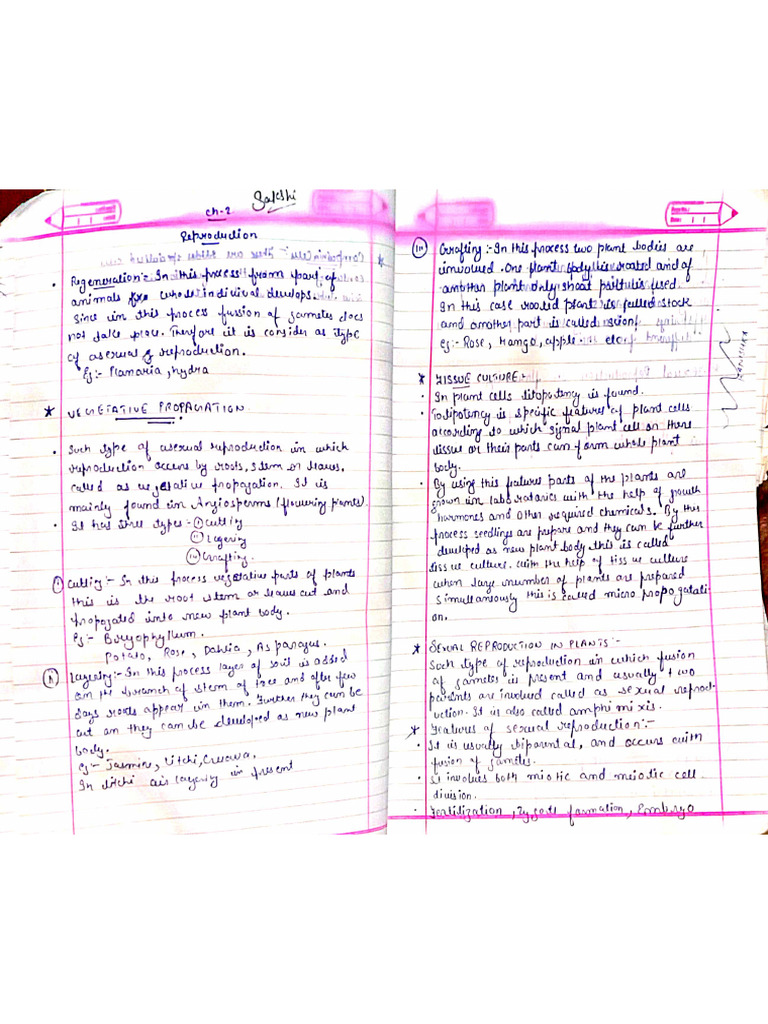 Ch-2 Sakshi
Reproduction
• Regeneration:- In this process from part of
animals whole indivical develops.
Since in this process fusion of gametes does
not take place. Therfore it is consider as type
of asexual reproduction.
Eg:- Planaria, hydra
* VEGETATIVE PROPAGATION
• Such type of asexual reproduction in which
reproduction occurs by roots, stem or leaves,
called as vegetative propagation. It is
mainly found in Angiosperms (flowering plants).
• It has three types:- (i) Cutting
(ii) Layering
(iii) Grafting.
(i) Cutting:- In this process vegetative parts of plants
this is the root stem or leaves cut and
propagated into new plant body.
Eg:- Boryophyllum.
Potato, Rose, Dahlia, Asparagus.
(ii) Layering:- In this process layer of soil is added
on the branch of stem of tree and after few
days roots appear in them. Further they can be
cut an they can be developed as new plant
body.
Eg:- Jasmine, Litchi, Guava.
In litchi air layering is present
(iii) Grafting:- In this process two plant bodies are
involved. One plant body is rooted and of
another plant only shoot part is used.
In this case rooted plant is called stock
and another part is called scion.
Eg:- Rose, Mango, apple etc
* TISSUE CULTURE:-
• In plant cells titopotency is found.
• Totipotency is specific features of plant cells
according to which signal plant cell on there
tissue or their parts can form whole plant
body.
• By using this features parts of the plants are
grown in labo ratories with the help of growth
hormones and other required chemicals. By this
process seedlings are prepare and they can be further
developed as new plant body this is called
tissue culture. With the help of tissue culture
when large number of plants are prepared
simultaneously this is called micro propogati-
on.
* SEXUAL REPRODUCTION IN PLANTS:-
Such type of reproduction in which fusion
of gametes is present and usually two
parents are involved called as sexual reprod-
uction. It is also called amphimixis.
* Features of sexual reproduction:-
• It is usually biparental, and occurs with
fusion of gametes.
• It involves both miotic and meiotic cell
division.
• Fertilization, Zygote formation, Embryo